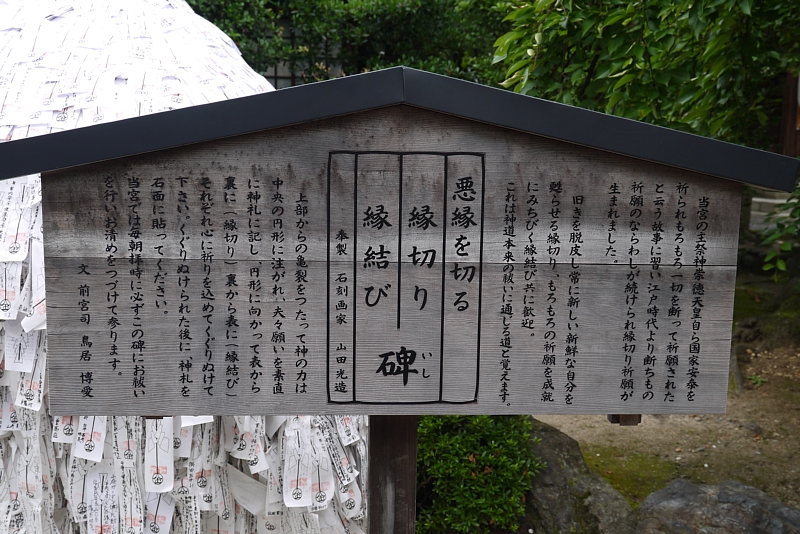 当宮の主祭神崇徳天皇自ら国家安泰を
祈られもろもろ一切を断って祈願された
と云う故事に習い江戸時代より断ちもの
祈願のならわしが続けられ縁切り祈願が
生まれました。
旧きを脱皮し常に新しい新鮮な自分を
甦らせる縁切り、もろもろの祈願を成就
にみちびく縁結び共に歓迎。
これは神道本来の祓いに通じる道と覚えます。
悪縁を切る
縁切り
縁結び
碑
いし
奉製 石刻画家 山田光造
上部からの亀裂をつたって神の力は
中央の円形に注がれ、夫々願いを素直
に神札に記し、円形に向かって表から
裏に(縁切り)裏から表に(縁結び)
それぞれ心に祈りを込めてくぐりぬけて
下さい。くぐりぬけられた後に、神札を
石面に貼ってください。
当宮では毎朝拝時に必ずこの碑にお祓い
を行い、お清めをつづけて参ります。
文 前宮司 鳥居 博愛